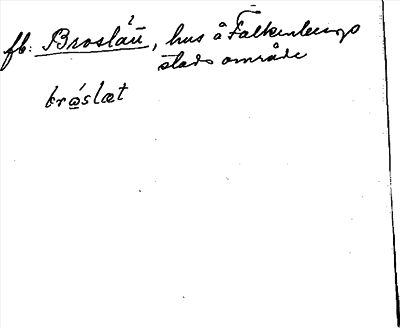 fb: Broslätt, hus å Falkenbergs
stads område
bråslæt